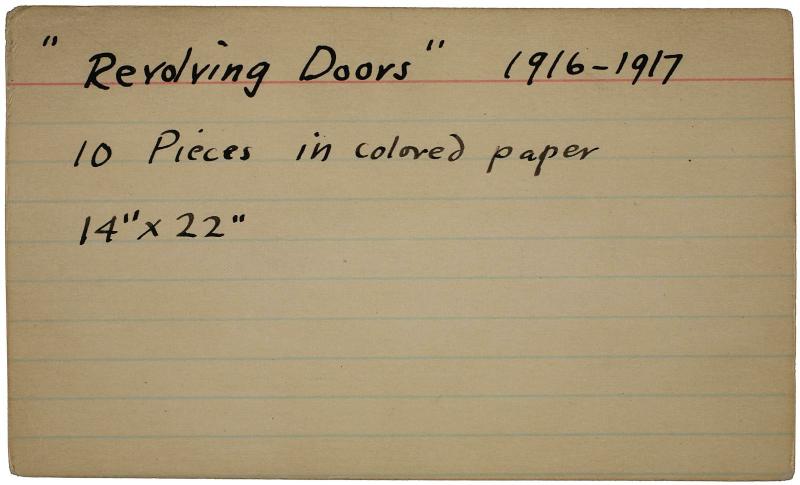 "Revolving Doors" 1916-1917
10 Pieces in colored paper
14"x 22"